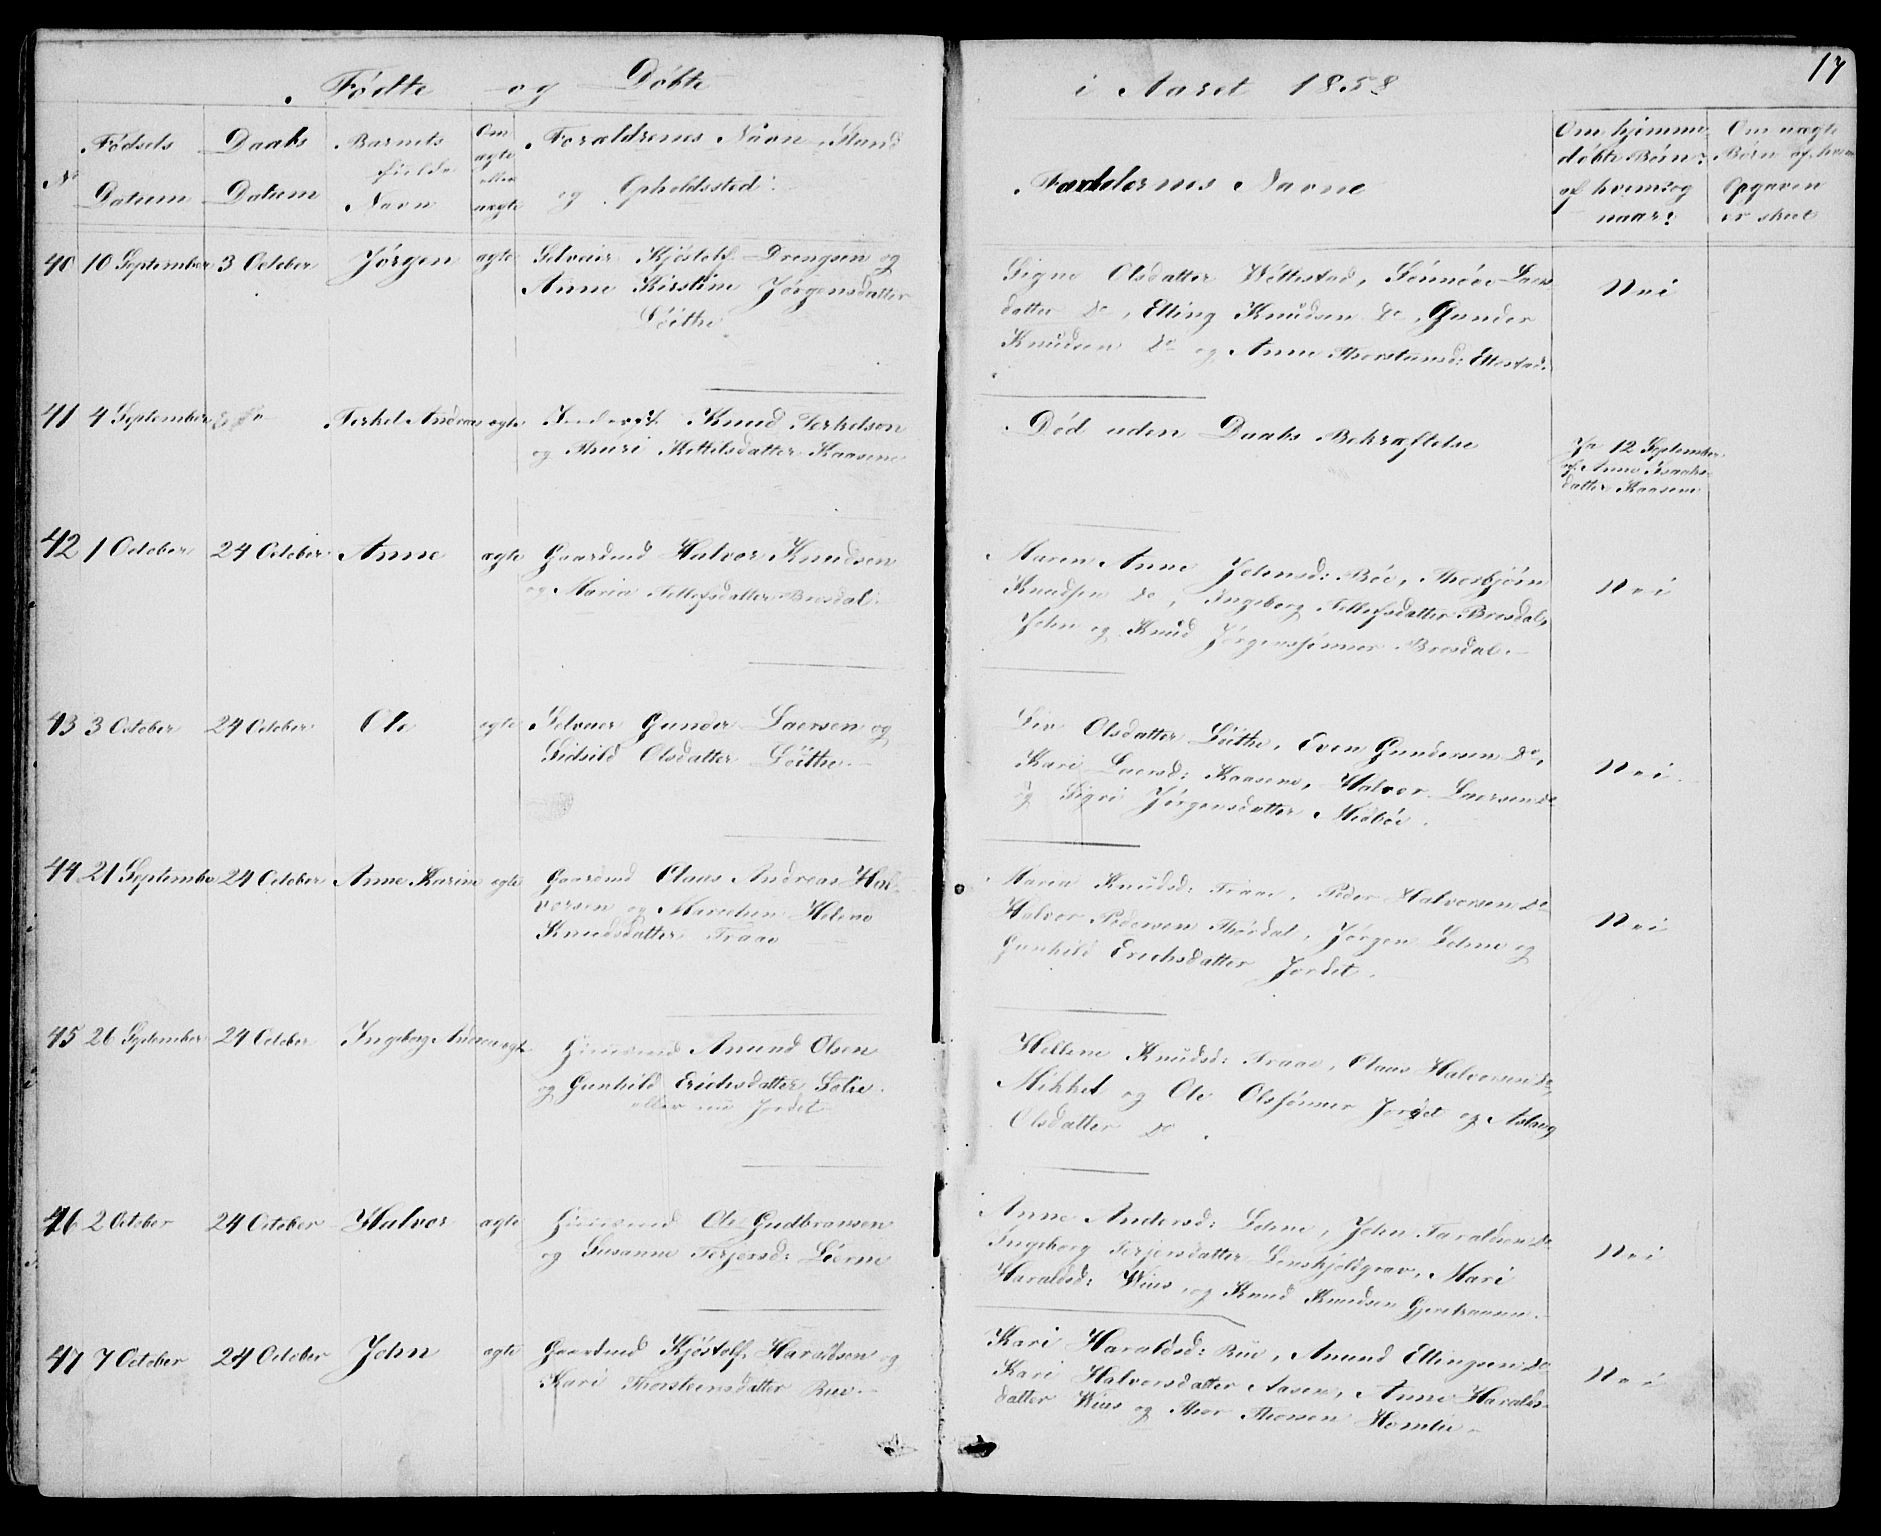 17
Fødte og Døbte
i Aaret 1858
No
Fødsels Datum
Daabs Datum
Barnets fulde Navn
Om ægte eller uægte
Forældrenes Navn, Stand og Opholdssted.
Faddernes Navne
Om hjemmedøbte Børn: af hvem og naar?
Om uægte Børn af hvem Opgaven er skeet
40 10 September 3 October Jørgen ægte Selveier Kjøstolf Drengsen og
Anne Kirstine Jørgensdatter
Göithe
Signe Olsdatter Wettestad, Sönnöve Laers
datter Do, Elling Knudsen Do, Gunder
Knudsen Do og Anne Thorstensd: Ettestad.
Nei
41 4 September Terkel Andreas ægte Knud Terkelsen
og Thuri Kettilsdatter Kaasene
Død uden Daabs Bekræftelse
Ja 12 September
af Anne Isaaks-
datter Kaasene
42 1 October 24 October Anne ægte Gaardmd Halvor Knudsen
og Maria Tellefsdatter Bresdal.
Maren Anne Johnsd: Böe, Thorbjörn
Knudsen Do, Ingeborg Tellefsdatter Bresdal,
John og Knud Jørgenssønner Bresdal.
Nei
43 3 October 24 October Ole ægte Selveier Gunder Laersen og
Sidsild Olsdatter Göithe.
Liv Olsdatter Göithe, Even Gundersen Do,
Kari Laersd: Kaasene, Halvor Laersen Do
og Sigri Jørgensdatter Midböe.
Nei
44 21 September 24 October Anne Karine ægte Gaardmd Claus Andreas Hal-
vorsen og Helene
Knudsdatter Traae
Maren Knudsd: Traae, Peder Halvorsen Do
Halvor Pedersen Thördal, Jørgen og
Gunhild Erichsdatter Jordet.
Nei
45 26 September 24 October Ingeborg Andrea ægte Huusmd Amund Olsen
og Gunhild Erichsdatter Solie
eller nu Jordet
Hellene Knudsd: Traae, Claus Halvorsen Do,
Mikkel og Ole Olssønner Jordet og Aslaug
Olsdatter Do.
46 2 October 24 October Halvor ægte Huusmd Ole Gudbransen
og Susanne Terjersd:
Anne Andersd: John Taraldsen Do
Ingeborg Terjersdatter Mari
Haraldsd: Wius, og Knud Knudsen
Nei
47 7 October 24 October John ægte Gaardmd Kjöstolf Haraldsen og
Kari Thorsteinsdatter Rue.
Kari Haraldsd: Rue, Amund Ellingsen Do
Kari Halvorsdatter Aasen, Anne Haralds-
datter Wius og Thor Thorsen Homlie.
Nei